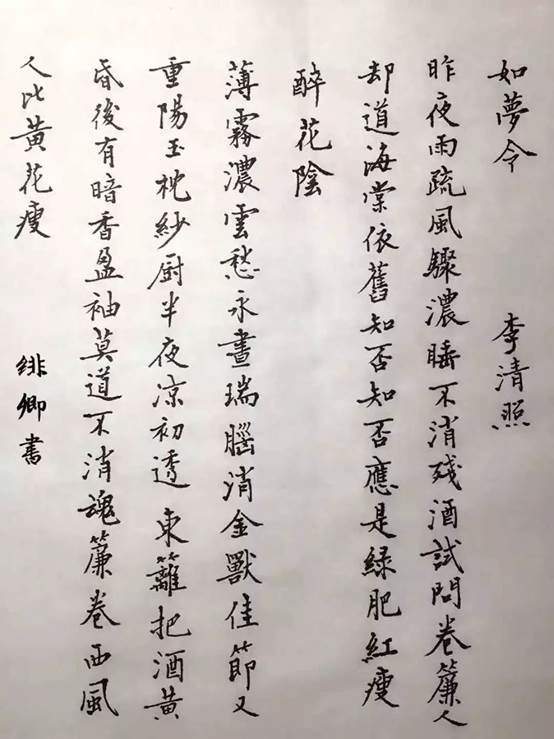 如夢令 李清照
昨夜雨疏風驟濃睡不消殘酒試問卷簾人
却道海棠依舊知否知否應是綠肥紅瘦
醉花陰
薄霧濃雲愁永晝瑞腦消金獸佳節又
重陽玉枕紗厨半夜凉初透東籬把酒黃
昏後有暗香盈袖莫道不消魂簾卷西風
人比黃花瘦 緋卿書